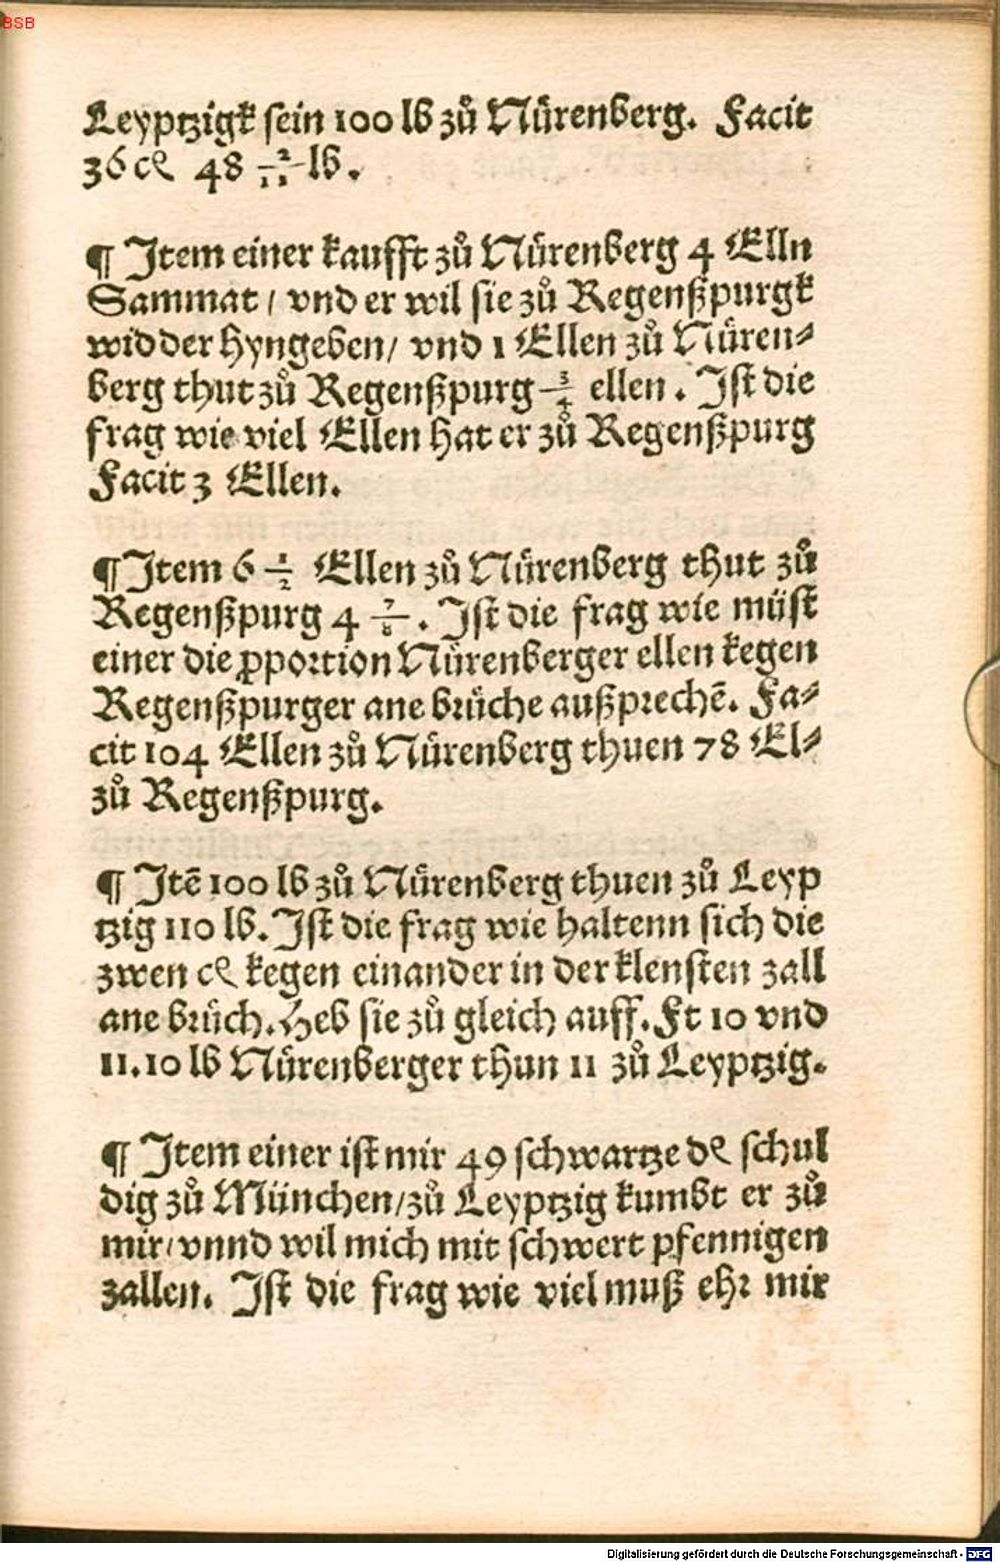 BSB
Leyptzigk sein 100 lb zů Nürenberg. Facit
36 cł 48 2/11 lb.
¶ Item einer kaufft zů Nürenberg 4 Elln
Sammat / vnd er wil sie zů Regenßpurgk
widder hyngeben / vnd 1 Ellen zů Nüren⸗
berg thut zů Regenßpurg 3/4 ellen. Ist die
frag wie viel Ellen hat er zů Regenßpurg
Facit 3 Ellen.
¶ Item 6 1/2 Ellen zů Nürenberg thut zů
Regenßpurg 4 7/8. Ist die frag wie müst
einer die ꝓportion Nürenberger ellen kegen
Regenßpurger ane brüche außprechē. Fa⸗
cit 104 Ellen zů Nürenberg thuen 78 El⸗
zů Regenßpurg.
¶ Itē 100 lb zů Nürenberg thuen zů Leyp
tzig 110 lb. Ist die frag wie haltenn sich die
zwen cł kegen einander in der klensten zall
ane brüch. Heb sie zů gleich auff. Ft 10 vnd
11. 10 lb Nürenberger thun 11 zů Leyptzig.
¶ Item einer ist mir 49 schwartze dł schul
dig zů München / zů Leyptzig kumbt er zů
mir / vnnd wil mich mit schwert pfennigen
zallen. Ist die frag wie viel muß ehr mir
Digitalisierung gefördert durch die Deutsche Forschungsgemeinschaft - DFG